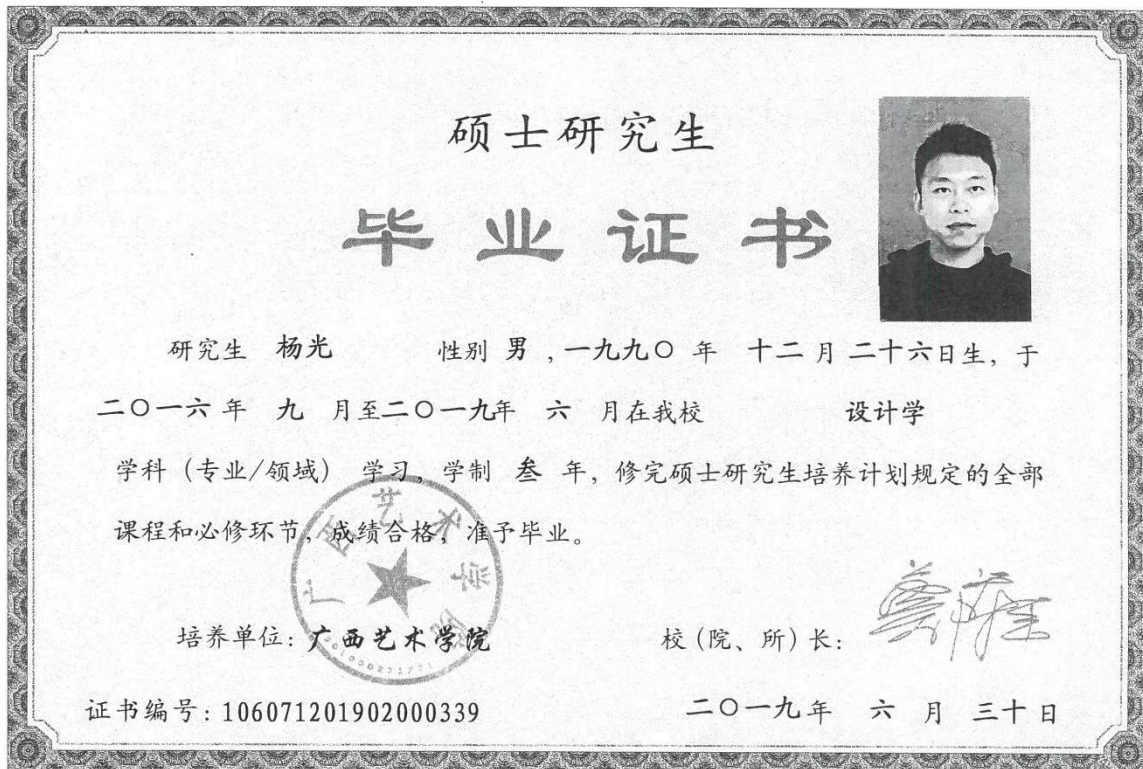 硕士研究生
毕业证书
研究生 杨光 性别 男，一九九〇 年 十二 月 二十六日生，于
二〇一六 年 九 月至二〇一九年 六 月在我校 设计学
学科（专业/领域） 学习，学制 叁 年，修完硕士研究生培养计划规定的全部
课程和必修环节，成绩合格，准予毕业。
广西艺术学院
培养单位：广西艺术学院 校（院、所）长：
证书编号：106071201902000339 二〇一九年 六 月 三十日